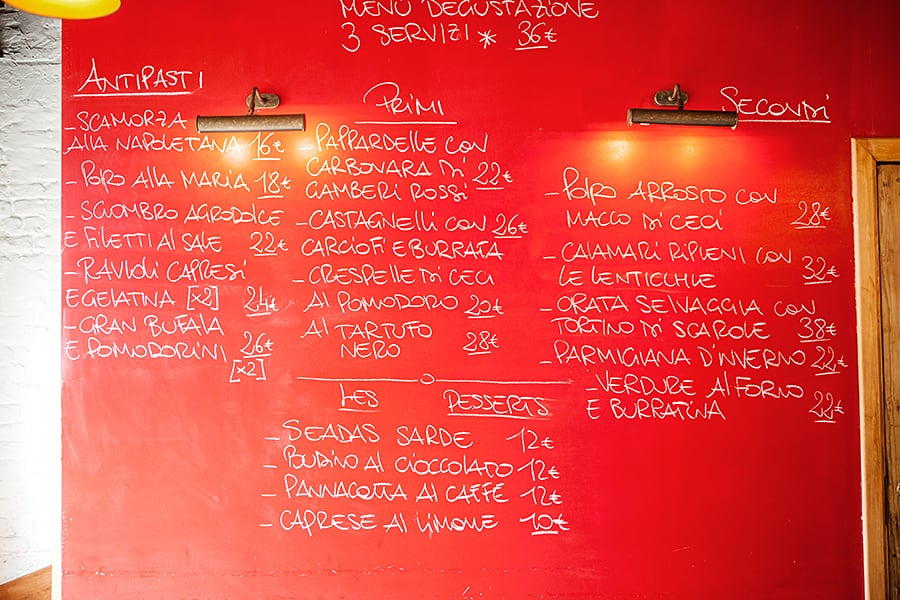 MENÙ DEGUSTAZIONE
3 SERVIZI * 36€
ANTIPASTI
- SCAMORZA
ALLA NAPOLETANA 16€
- POLPO ALLA MARIA 18€
- SGOMBRO AGRODOLCE
E FILETTI AL SALE 22€
- RAVIOLI CAPRESI
E GELATINA [x2] 24€
- GRAN BUFALA
E POMODORINI 26€
[x2]
PRIMI
- PAPPARDELLE CON
CARBONARA DI 22€
GAMBERI ROSSI
- CASTAGNELLI CON 26€
CARCIOFI E BURRATA
- CRESPELLE DI CECI
AL POMODORO 20€
AL TARTUFO
NERO 28€
SECONDI
- POLPO ARROSTO CON
MACCO DI CECI 28€
- CALAMARI RIPIENI CON
LE LENTICCHIE 32€
- ORATA SELVAGGIA CON
TORTINO DI SCAROLE 38€
- PARMIGIANA D'INVERNO 22€
- VERDURE AL FORNO
E BURRATINA 22€
LES DESSERTS
- SEADAS SARDE 12€
- BUDINO AL CIOCCOLATO 12€
- PANNACOTTA AL CAFFÈ 12€
- CAPRESE AL LIMONE 10€